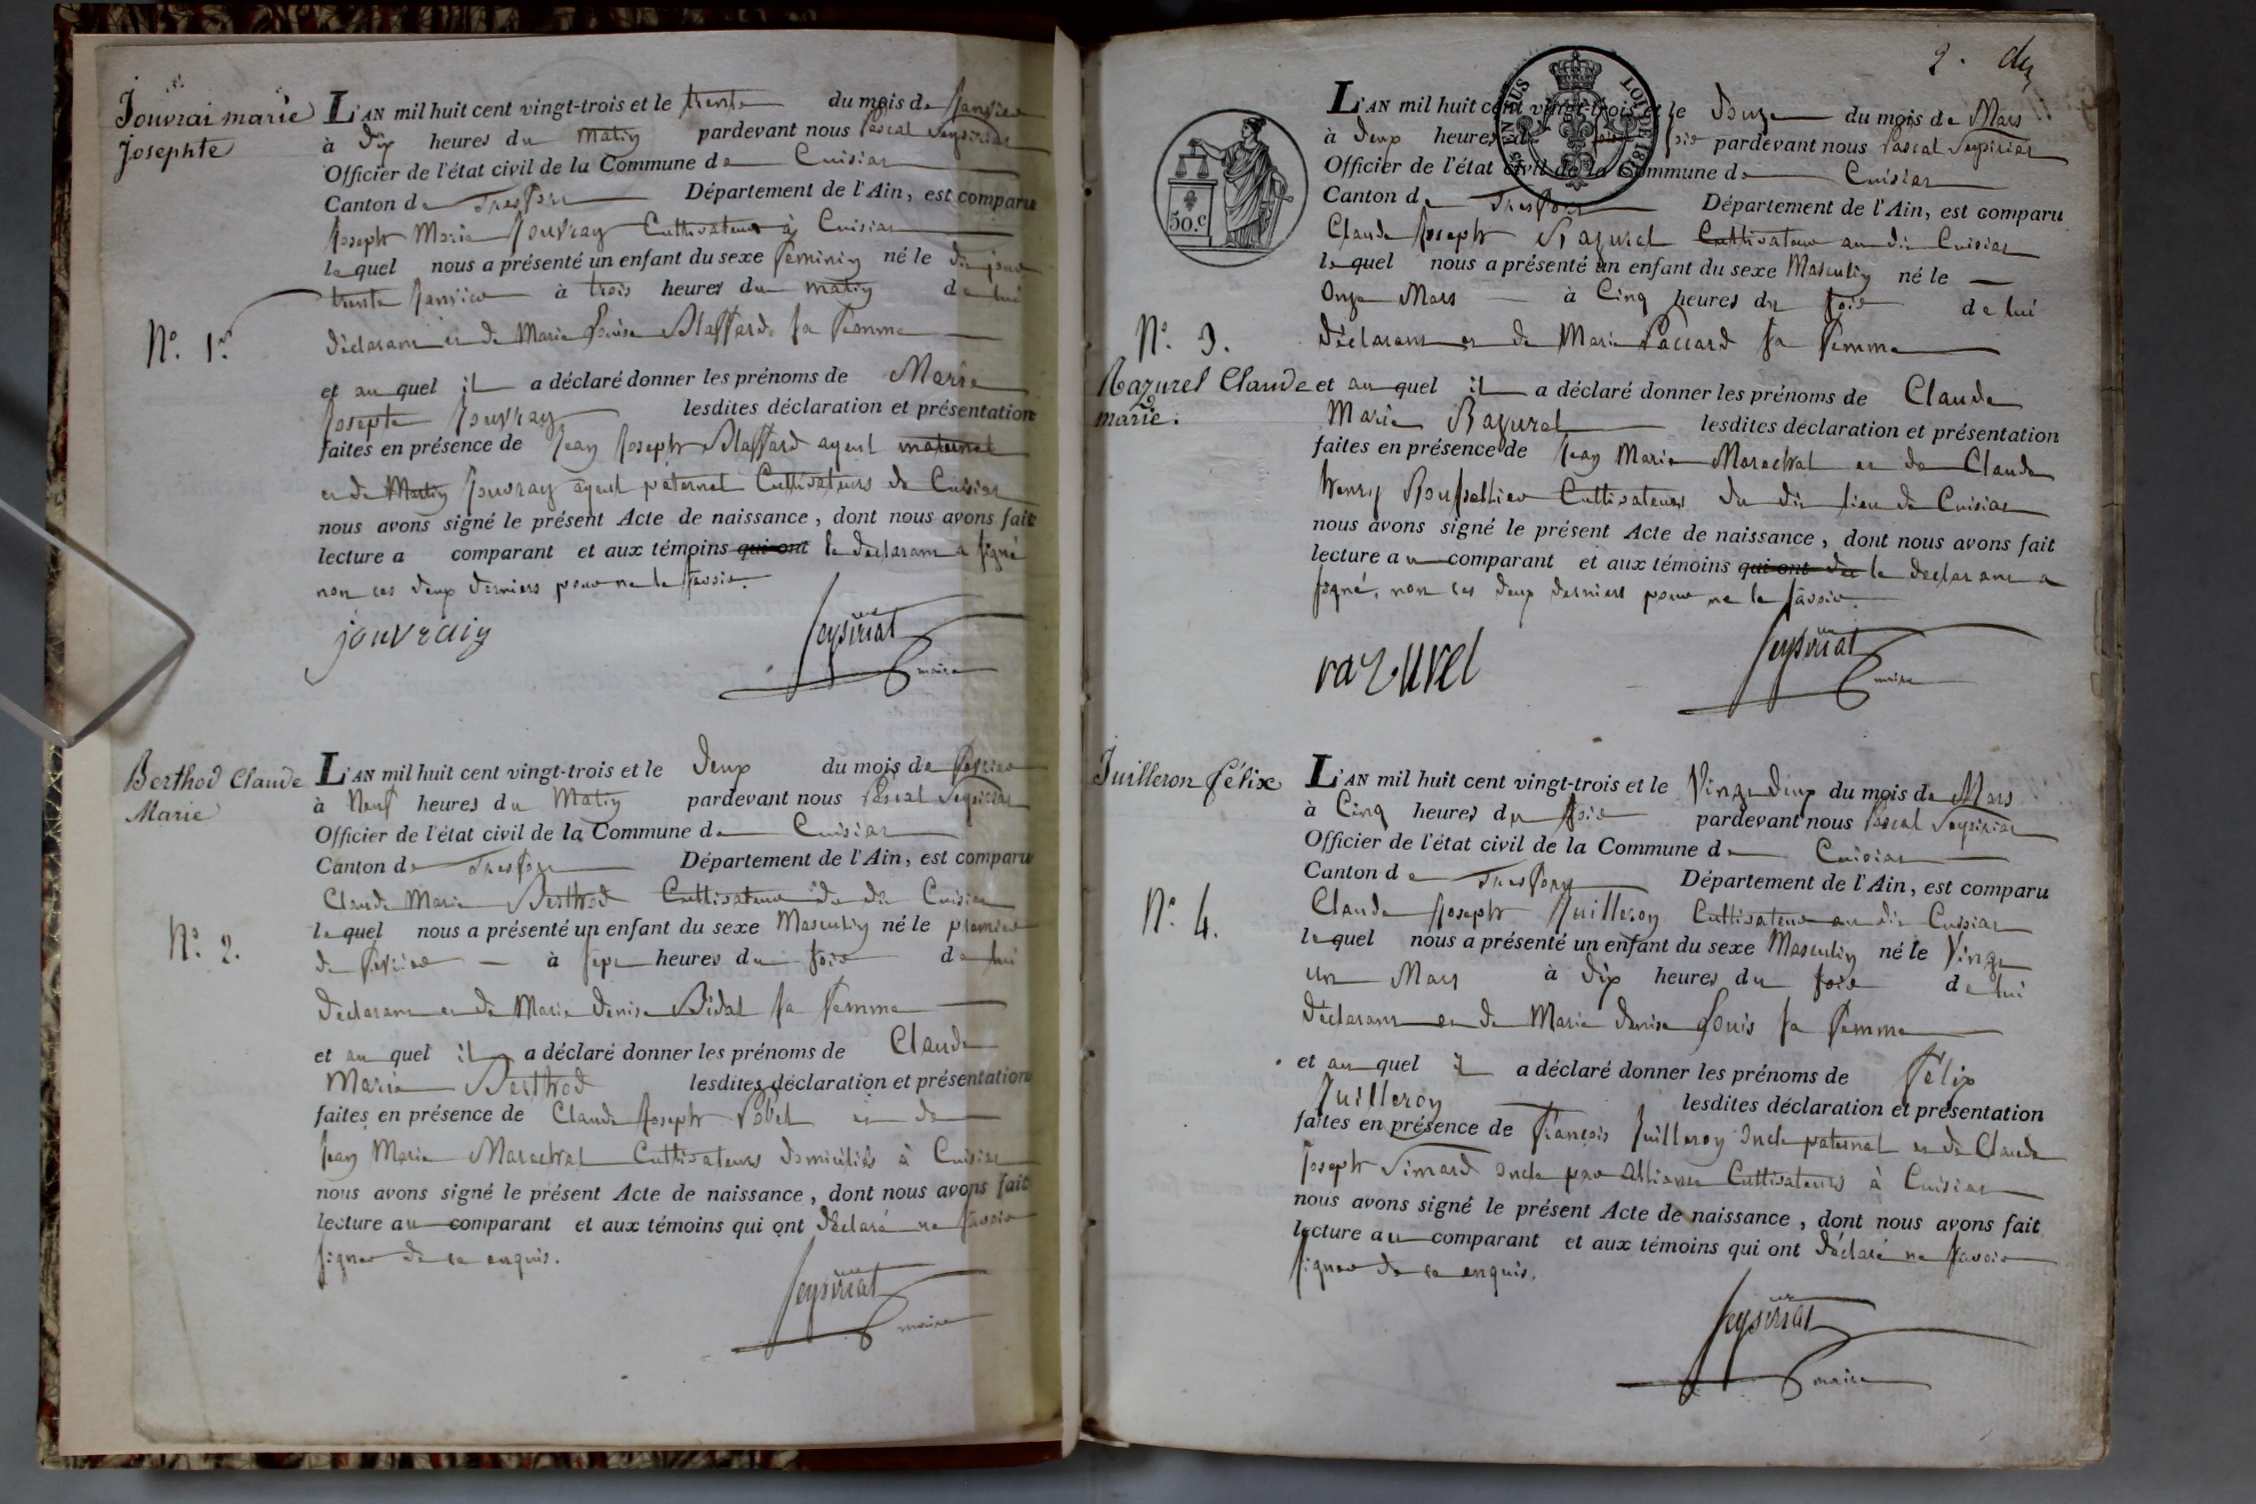 Jouvrai marie
Josephte
L'AN mil huit cent vingt-trois et le trente du mois de Janvier
à dix heures du matin pardevant nous Pascal Seysiriat
Officier de l'état civil de la Commune de Cuisiat
Canton de Treffort Département de l'Ain, est comparu
Joseph Marie Jouvray Cultivateur à Cuisiat
lequel nous a présenté un enfant du sexe féminin né le dit jour
trente Janvier à trois heures du matin de lui
N.º 1.er
déclarant et de Marie Louise Blaffard sa femme
et au quel il a déclaré donner les prénoms de Marie
Josephte Jouvray lesdites déclaration et présentation
faites en présence de Jean Joseph Blaffard ayeul maternel
et de Martin Jouvray ayeul paternel Cultivateurs de Cuisiat
nous avons signé le présent Acte de naissance, dont nous avons fait
lecture a comparant et aux témoins qui ont le déclarant a signé
non ces deux derniers pour ne le savoir.
jouvraiy
Seysiriat
maire
Berthod Claude
Marie
L'AN mil huit cent vingt-trois et le deux du mois de février
à Neuf heures du Matin pardevant nous Pascal Seysiriat
Officier de l'état civil de la Commune de Cuisiat
Canton de Treffort Département de l'Ain, est comparu
Claude Marie Berthod Cultivateur du dit Cuisiat
lequel nous a présenté un enfant du sexe Masculin né le premier
N.º 2.
de février à sept heures du soir de lui
déclarant et de Marie denise Vidal sa femme
et au quel il a déclaré donner les prénoms de Claude
Marie Berthod lesdites déclaration et présentation
faites en présence de Claude Joseph et de
Jean Marie Marechal Cultivateurs domiciliés à Cuisiat
nous avons signé le présent Acte de naissance, dont nous avons fait
lecture au comparant et aux témoins qui ont déclaré ne savoir
signer de ce enquis.
Seysiriat
maire
2. deux
L'AN mil huit cent vingt-trois et le Douze du mois de Mars
à deux heures du soir pardevant nous Pascal Seysiriat
Officier de l'état civil de la Commune de Cuisiat
Canton de Treffort Département de l'Ain, est comparu
50.c
Claude Joseph Razurel Cultivateur au dit Cuisiat
lequel nous a présenté un enfant du sexe Masculin né le
Onze Mars à Cinq heures du soir de lui
N.º 3.
déclarant et de Marie Paccard sa femme
Razurel Claude
marie.
et au quel il a déclaré donner les prénoms de Claude
Marie Razurel lesdites déclaration et présentation
faites en présence de Jean Marie Marechal et de Claude
henry Cultivateurs du dit lieu de Cuisiat
nous avons signé le présent Acte de naissance, dont nous avons fait
lecture au comparant et aux témoins qui ont le déclarant a
signé, non ces deux derniers pour ne le savoir.
razurel
Seysiriat
maire
Juilleron félix
L'AN mil huit cent vingt-trois et le Vingt deux du mois de Mars
à Cinq heures du soir pardevant nous Pascal Seysiriat
Officier de l'état civil de la Commune de Cuisiat
Canton de Treffort Département de l'Ain, est comparu
N.º 4.
Claude Joseph Juilleron Cultivateur au dit Cuisiat
lequel nous a présenté un enfant du sexe Masculin né le Vingt
un Mars à dix heures du soir de lui
déclarant et de Marie denise Louis sa femme
et au quel il a déclaré donner les prénoms de félix
Juilleron lesdites déclaration et présentation
faites en présence de françois Juilleron oncle paternel et de Claude
Joseph Simard oncle par alliance Cultivateurs à Cuisiat
nous avons signé le présent Acte de naissance, dont nous avons fait
lecture au comparant et aux témoins qui ont déclaré ne savoir
signer de ce enquis.
Seysiriat
maire